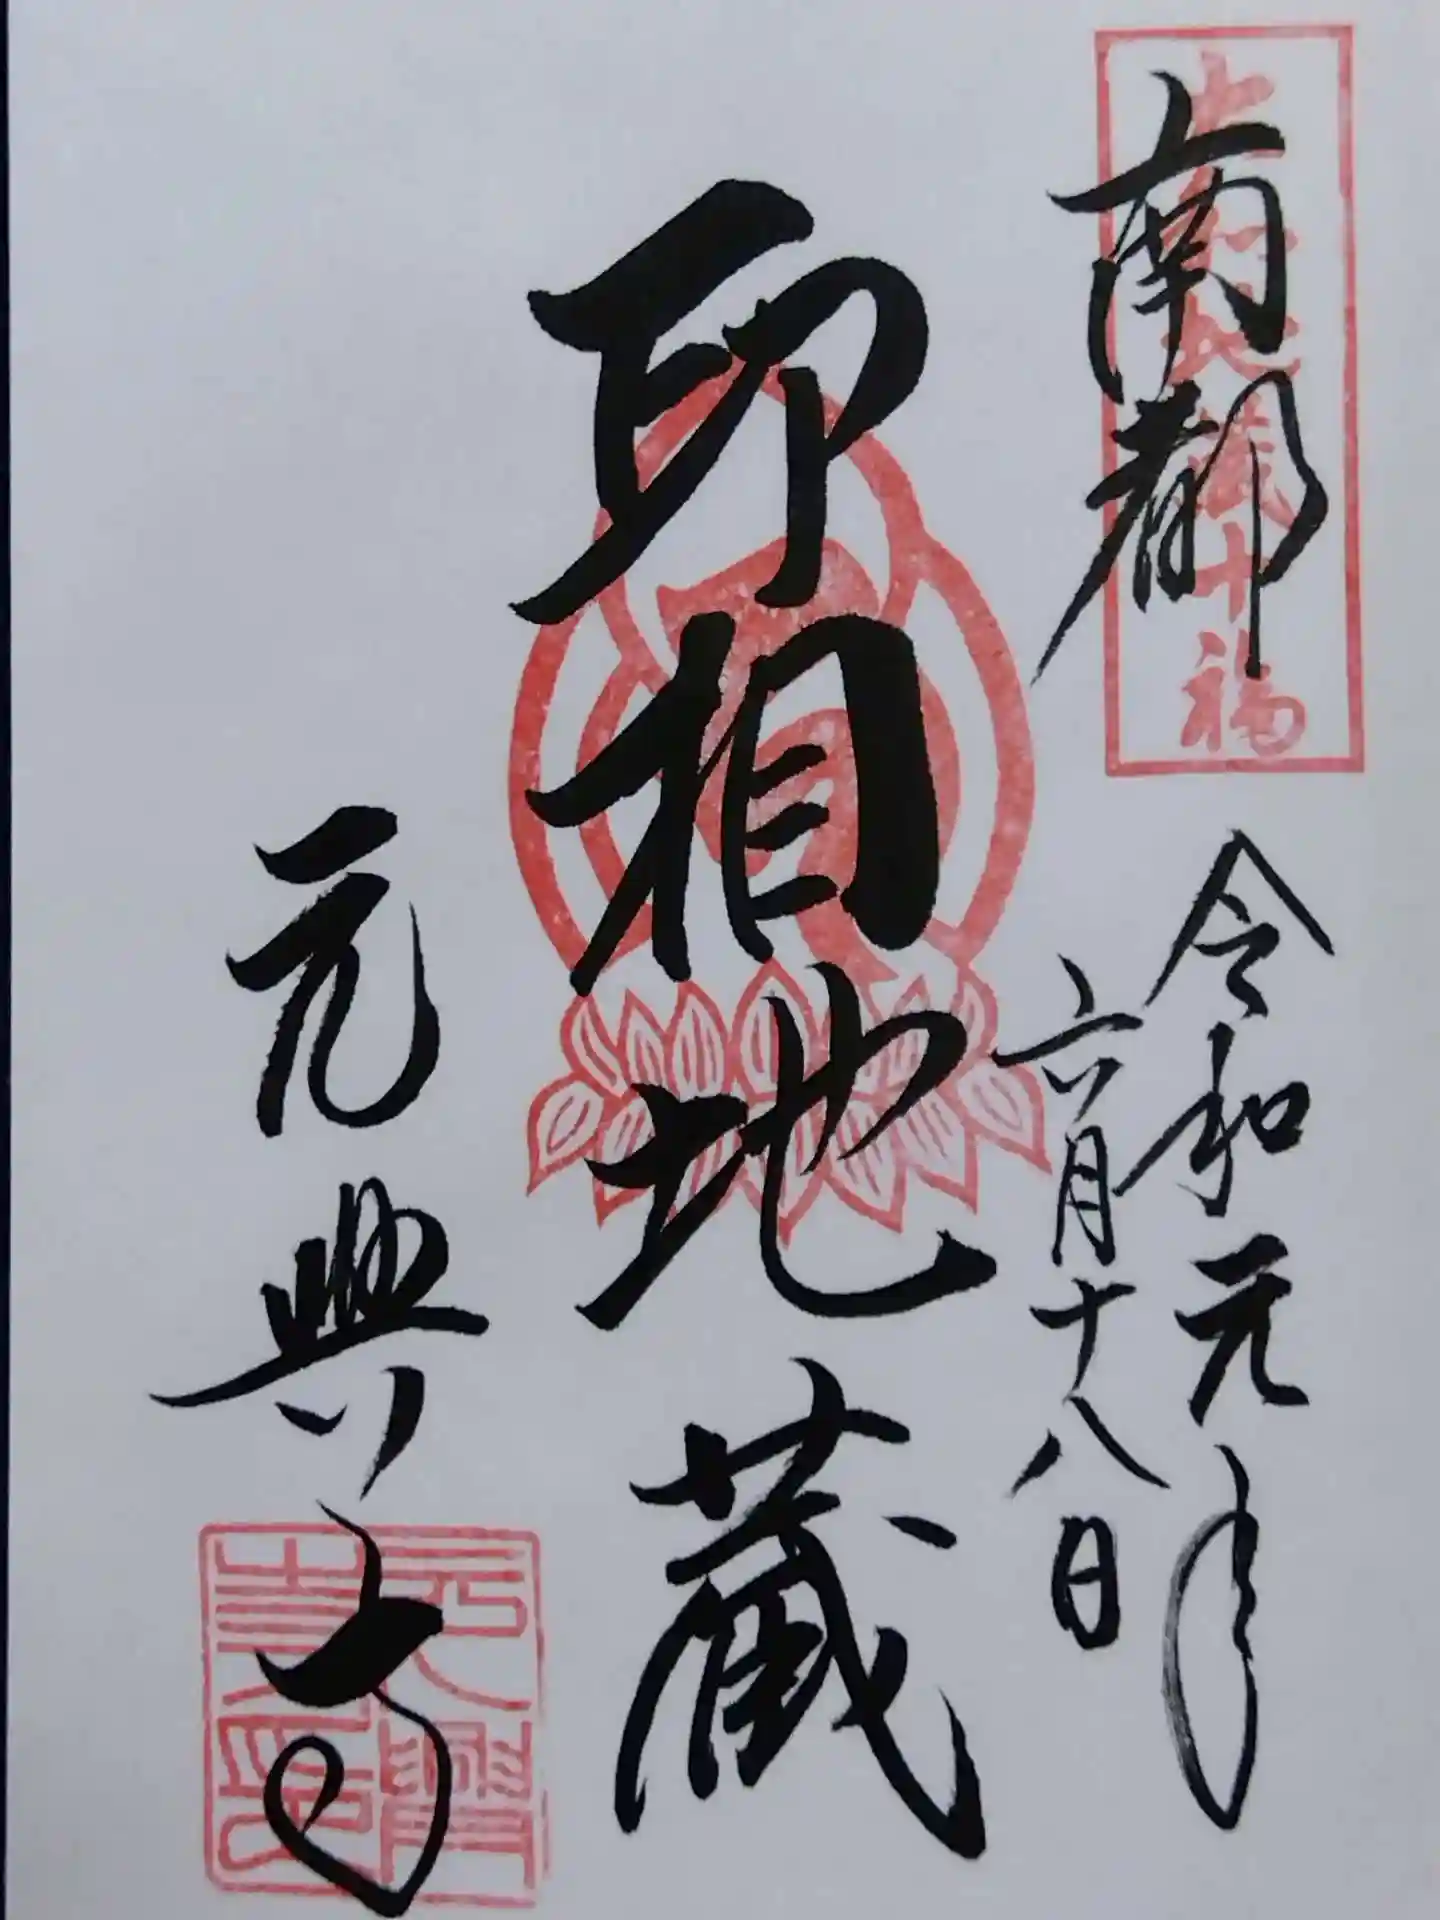 南都
令和元年
六月十八日
印相地蔵
元興寺
元興寺印